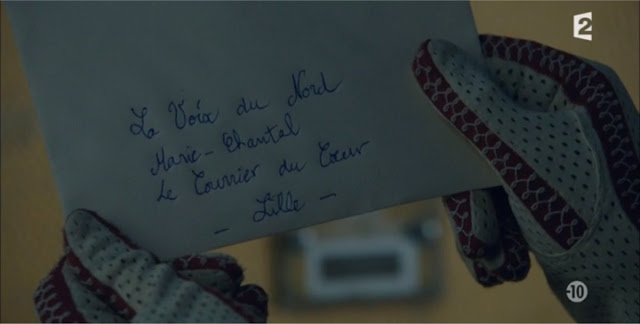 2
La Voix du Nord
Marie-Chantal
Le Courrier du Cœur
- Lille -
-10